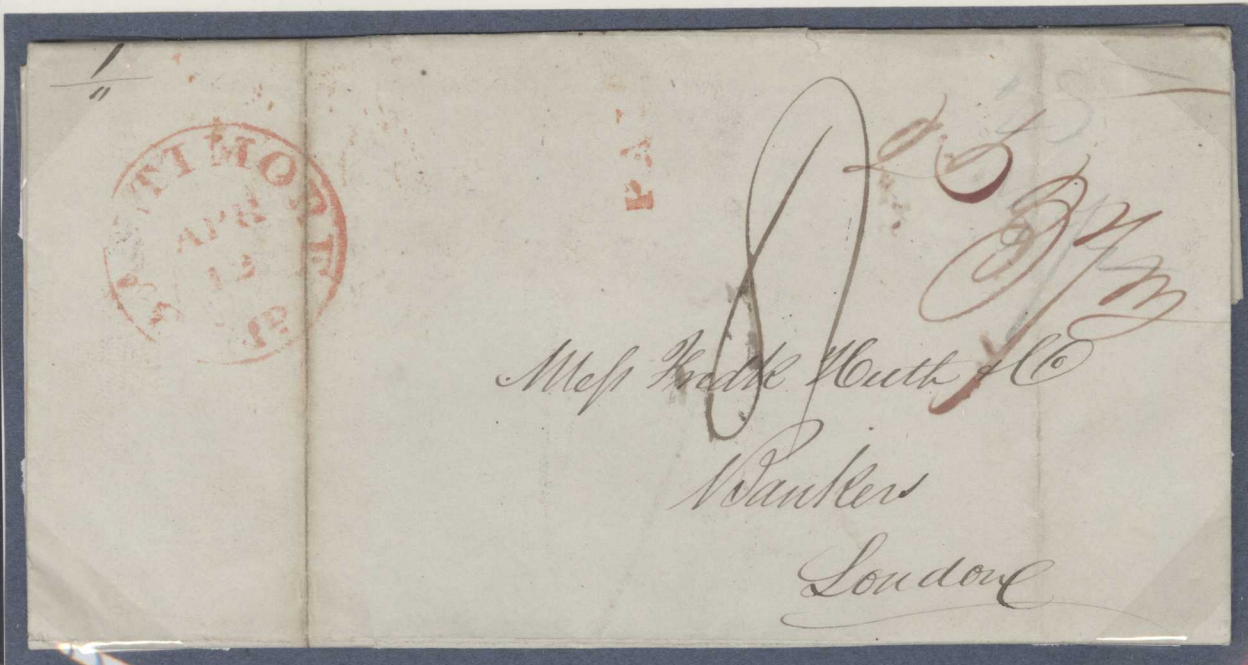 BALTIMORE
APR
12
MD
PAI
8
Mess Fredk Huth & Co
Bankers
London